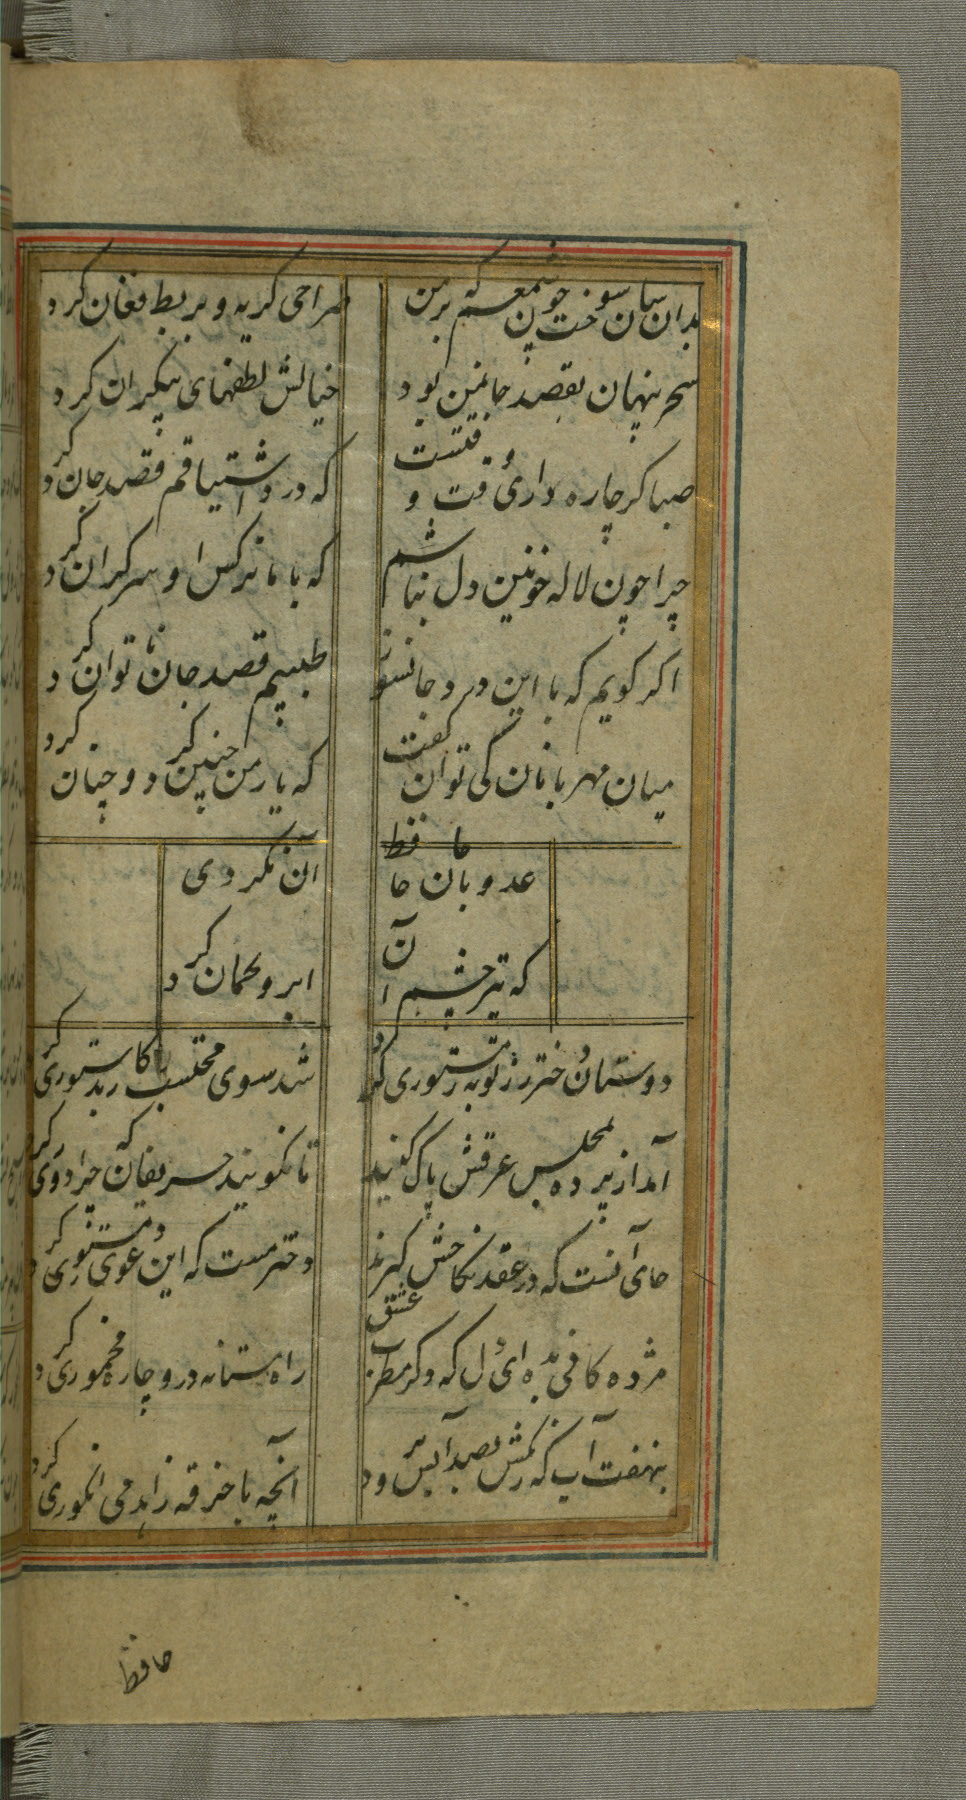 بدان سان سوخت چون شمعم که بر من
صراحی کریه و بربط فغان کرد
سحر پنهان بقصد جان من بود
خیالش لطفهای بیکران کرد
صبا کر چاره داری وقت وقتست
که درد اشتیاقم قصد جان کرد
چرا چون لاله خونین دل نباشم
که با ما نرکس او سر کران کرد
اکر کویم که با این درد جانسوز
طبیبم قصد جان ناتوان کرد
میان مهربانان کی توان کفت
که یار من چنین کرد و چنان کرد
عدو با جان حافظ
آن نکردی
که تیر چشم آن
ابرو کمان کرد
دوستان دختر رز توبه ز مستوری کرد
شد سوی محتسب و کار بدستوری کرد
آمد از پرده مجلس عرقش پاک کنید
تا نکویند حریفان که چرا دوری کرد
جای آنست که در عقد نکاحش کیرند
دختر مست که این دعوی مستوری کرد
مژدکانی بده ای دل که دکر مطرب عشق
راه مستانه زد و چاره مخموری کرد
نه بهفت آب که رنکش بصد آتش نرود
آنچه با خرقه زاهد می انکوری کرد
حافظ